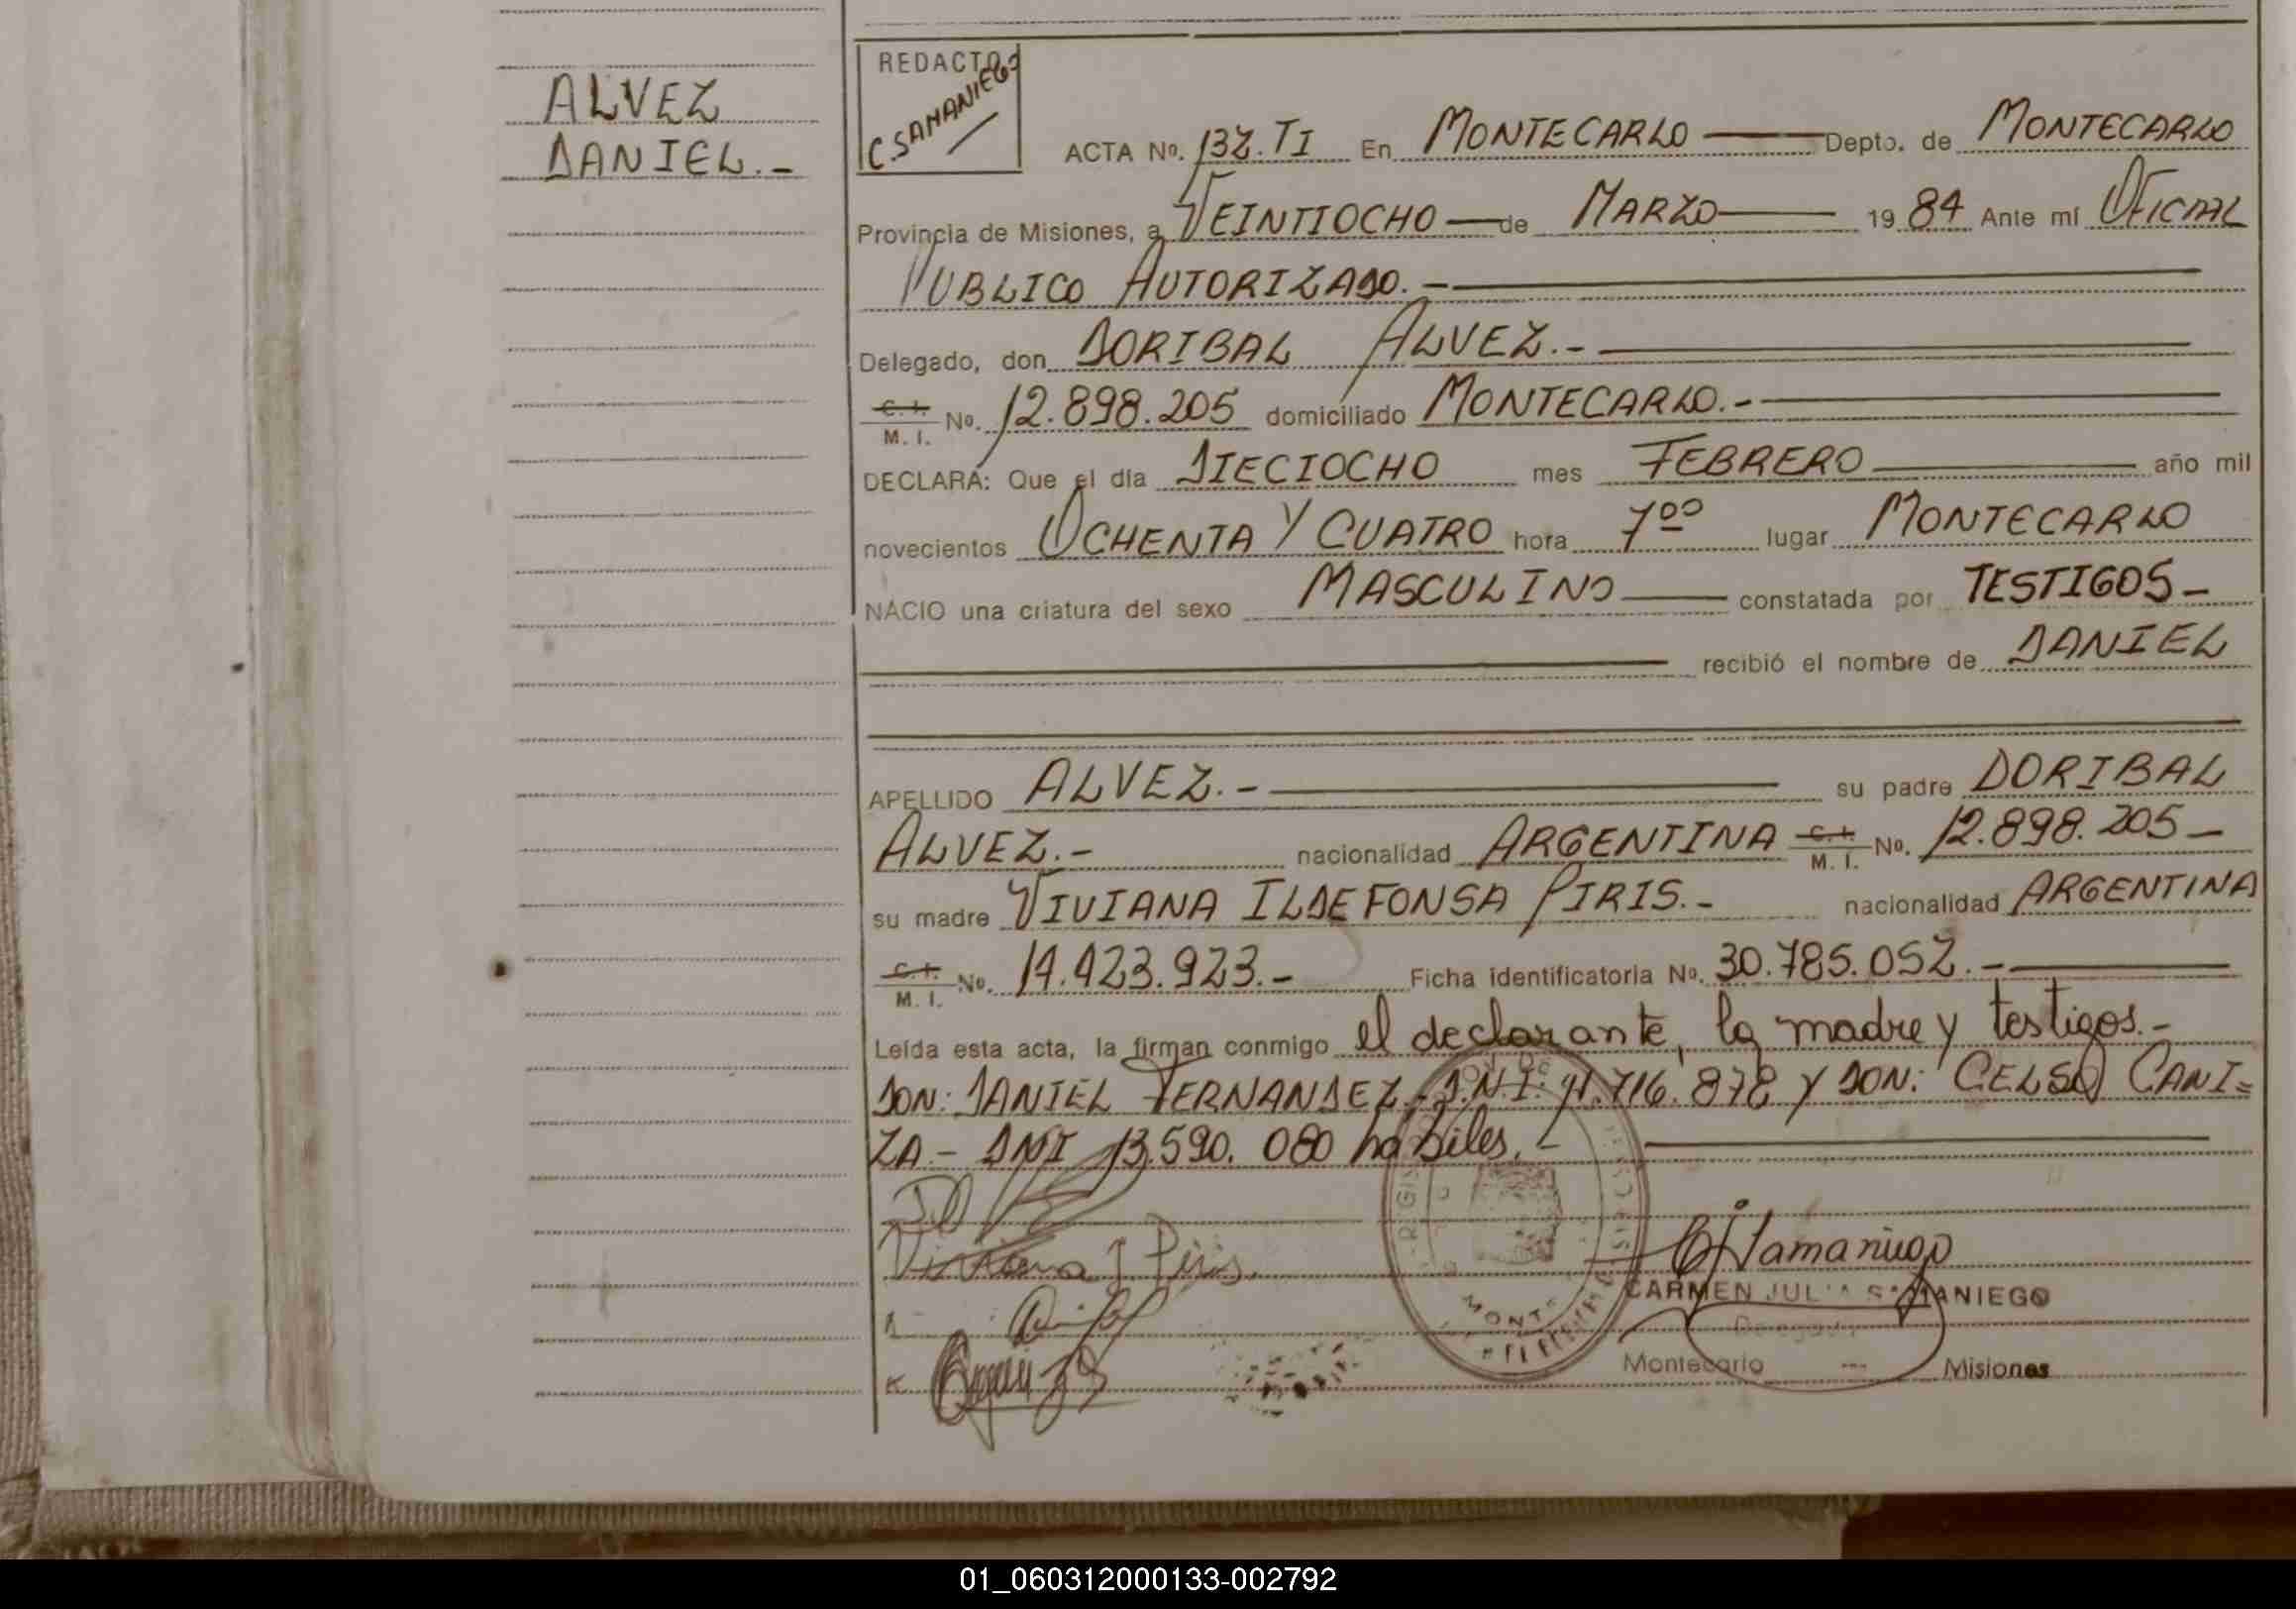 ALVEZ
DANIEL.-
REDACTO
C. SAMANIEGO
ACTA No. 132.TI En MONTECARLO Depto. de MONTECARLO
Provincia de Misiones, a VEINTIOCHO de MARZO 19 84 Ante mí OFICIAL
PUBLICO AUTORIZADO.-
Delegado, don DORIBAL ALVEZ.-
C. I.
M. I. No. 12.898.205 domiciliado MONTECARLO.-
DECLARA: Que el día DIECIOCHO mes FEBRERO año mil
novecientos OCHENTA Y CUATRO hora 7⁰⁰ lugar MONTECARLO
NACIO una criatura del sexo MASCULINO constatada por TESTIGOS-
recibió el nombre de DANIEL
APELLIDO ALVEZ.- su padre DORIBAL
ALVEZ.- nacionalidad ARGENTINA C. I. M. I. No. 12.898.205-
su madre VIVIANA ILDEFONSA PIRIS.- nacionalidad ARGENTINA
C. I.
M. I. No. 14.423.923.- Ficha identificatoria No. 30.785.052.-
Leída esta acta, la firman conmigo el declarante, la madre y testigos.-
DON: DANIEL FERNANDEZ, D.N.I. 11.716.878 Y DON: CELSO CANI=
ZA.- DNI 13.590.080 habiles.
Viviana I Piris.
CJSamaniego
CARMEN JULIA SAMANIEGO
Delegada
Montecarlo --- Misiones
01_060312000133-002792